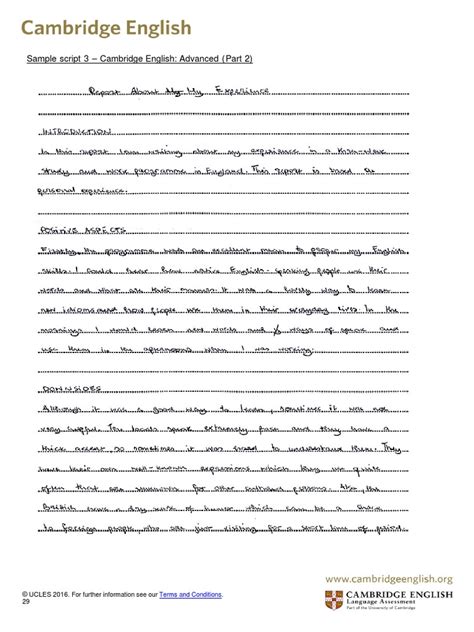 Cambridge English
Sample script 3 – Cambridge English: Advanced (Part 2)
Report About My My Experience
INTRODUCTION
In this report I am writing about my experience in a three-
study and work programme in England. This report is based
personal experience.
POSITIVE ASPECTS
Firstly, the programme was an excellent mean to my English
skills. I could hear how native English-speaking people use their
words and what are their manners. It was a way to learn
new and how people are in their everyday lives. In the
mornings I would learn new words and ways of speak and
use them in the afternoons when I was working.
DOWNSIDES
Although it was a good way to learn, sometimes it was not
very The locals speak extremely fast and they have a
thick accent so sometimes it was hard to understand them. They
have their own expressions which they use quite
often that are for other persons. Also the
British have a dry sense of humor which can be a
to foreign people who are just visiting for a short time of period
www.cambridgeenglish.org
© UCLES 2016. For further information see our Terms and Conditions.
29
CAMBRIDGE ENGLISH
Language Assessment
Part of the University of Cambridge